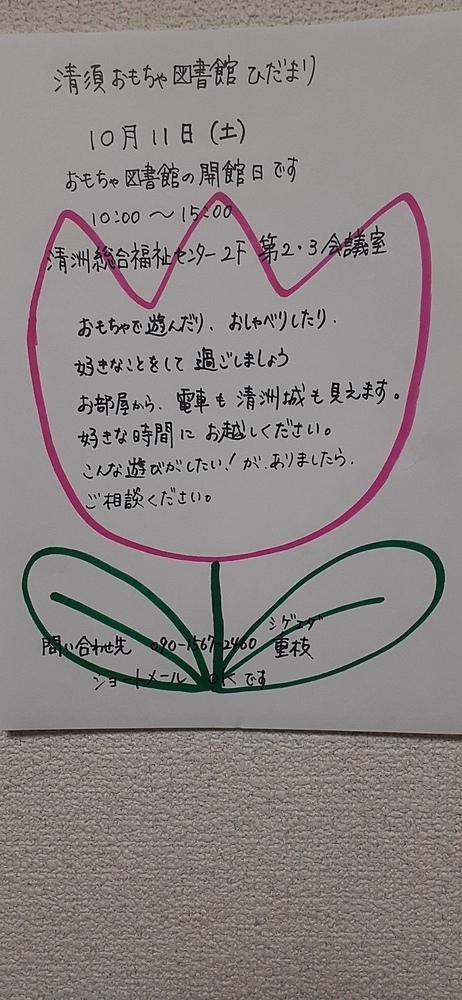 清須おもちゃ図書館 ひだまり
10月11日(土)
おもちゃ図書館の開館日です
10:00〜15:00
清洲総合福祉センター2F 第2・3会議室
おもちゃで遊んだり、おしゃべりしたり、
好きなことをして過ごしましょう
お部屋から、電車も清洲城も見えます。
好きな時間にお越しください。
こんな遊びがしたい!が、ありましたら、
ご相談ください。
シゲエダ
問い合わせ先 090-1567-2460 重枝
ショートメール OKです